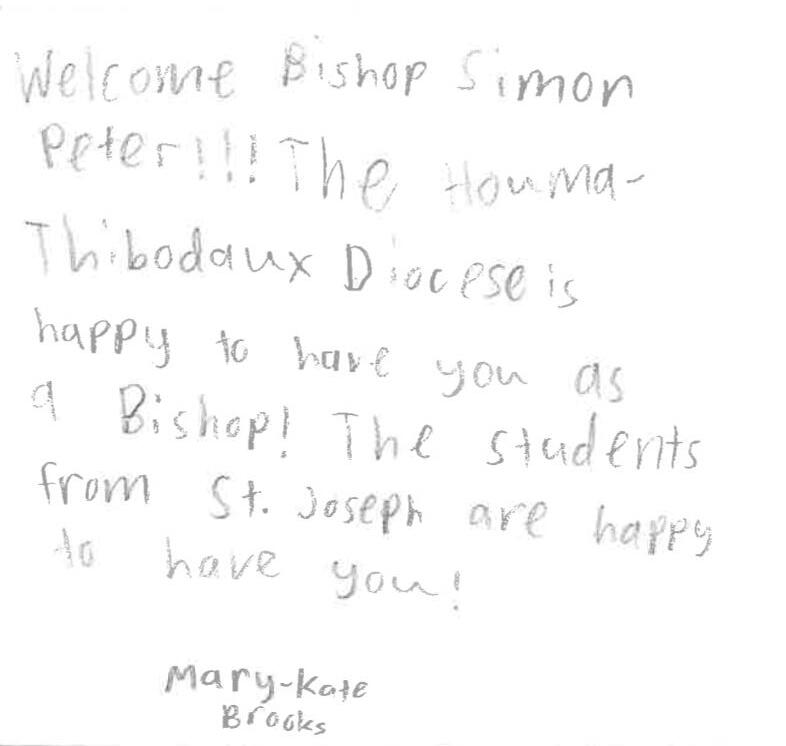 Welcome Bishop Simon
Peter!!! The Houma-
Thibodaux Diocese is
happy to have you as
a Bishop! The students
from St. Joseph are happy
to have you!
Mary-Kate
Brooks